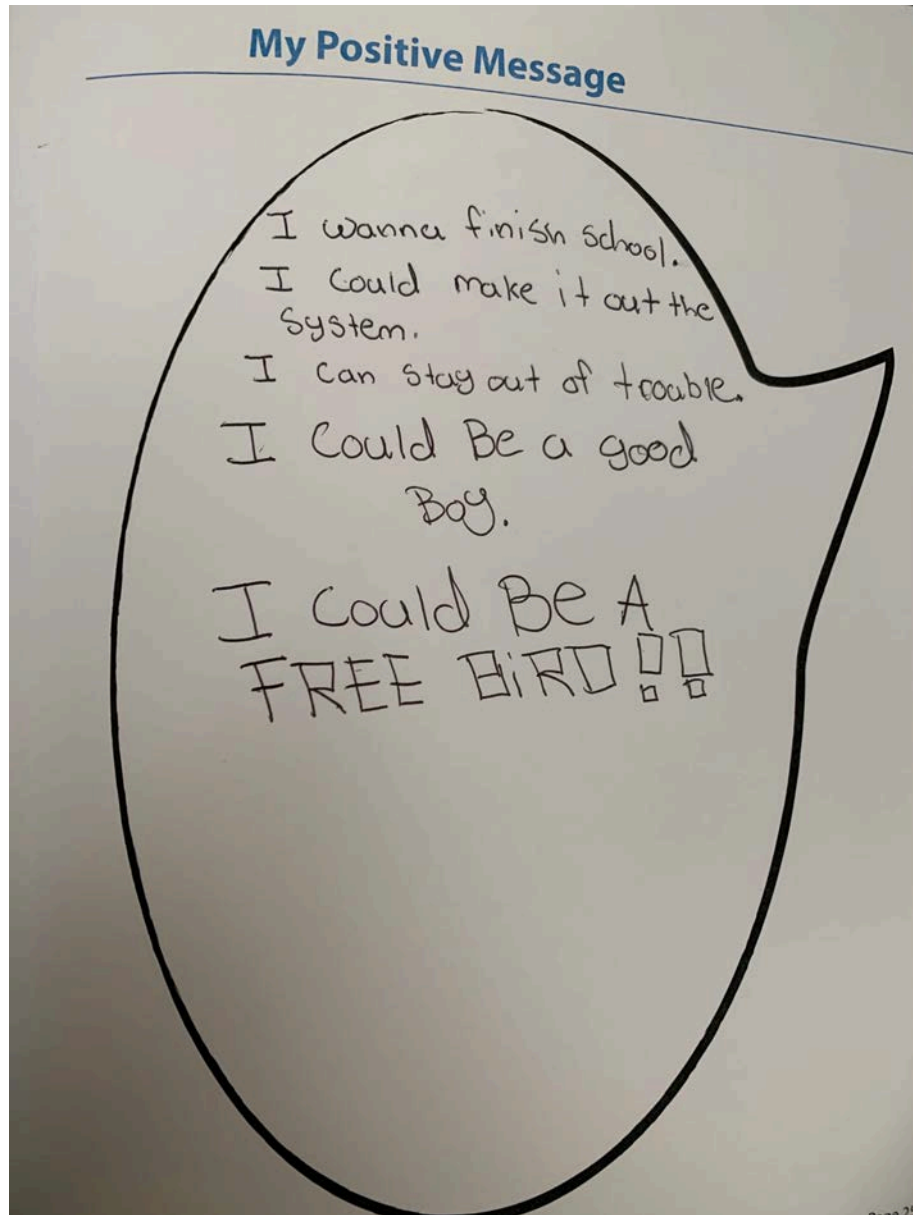 My Positive Message
I wanna finish school.
I Could make it out the
System.
I Can stay out of trouble.
I Could Be a good
Boy.
I Could Be A
FREE BiRD!!